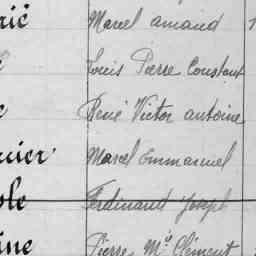 ric Marcel amand
Louis Pierre Constant
René Victor antoine
cier Marcel Emmanuel
ole Ferdinand Joseph
ine Pierre Mie Clément